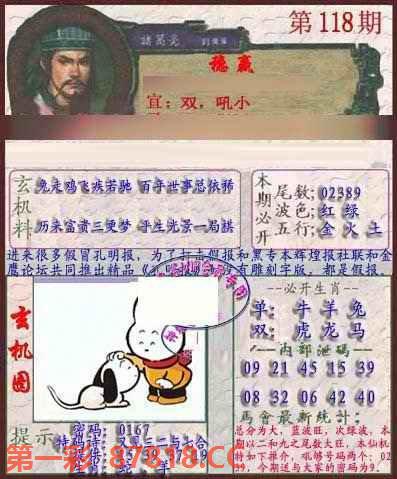 第118期
諸葛亮
穩贏
宜：双，吼小
玄机料
兔走鸡飞疾若驰 百年世事总依稀
历来富贵三更梦 平生光景一局棋
本期必开
尾数：02389
波色：红 绿
五行：金 火 土
进来很多假冒孔明报，为了打击假报和黑专本辉煌报社联和金
鹰论坛共同推出精品
没有雕刻字版，都是假报
玄机图
必开生肖
单：牛 羊 兔
双：虎 龙 马
内部泄码
09 21 45 15 39
04 13 49 17 35
08 32 06 42 40
馬會最新統計：
总分为大，蓝波旺，次绿波，本
期以二和九之尾数大旺，本仙机
特如下操作，吼够号码两个：02
09，今期送与大家的密码为9.
提示
密码：0167
又见三二与七合
第一彩 87818.CC